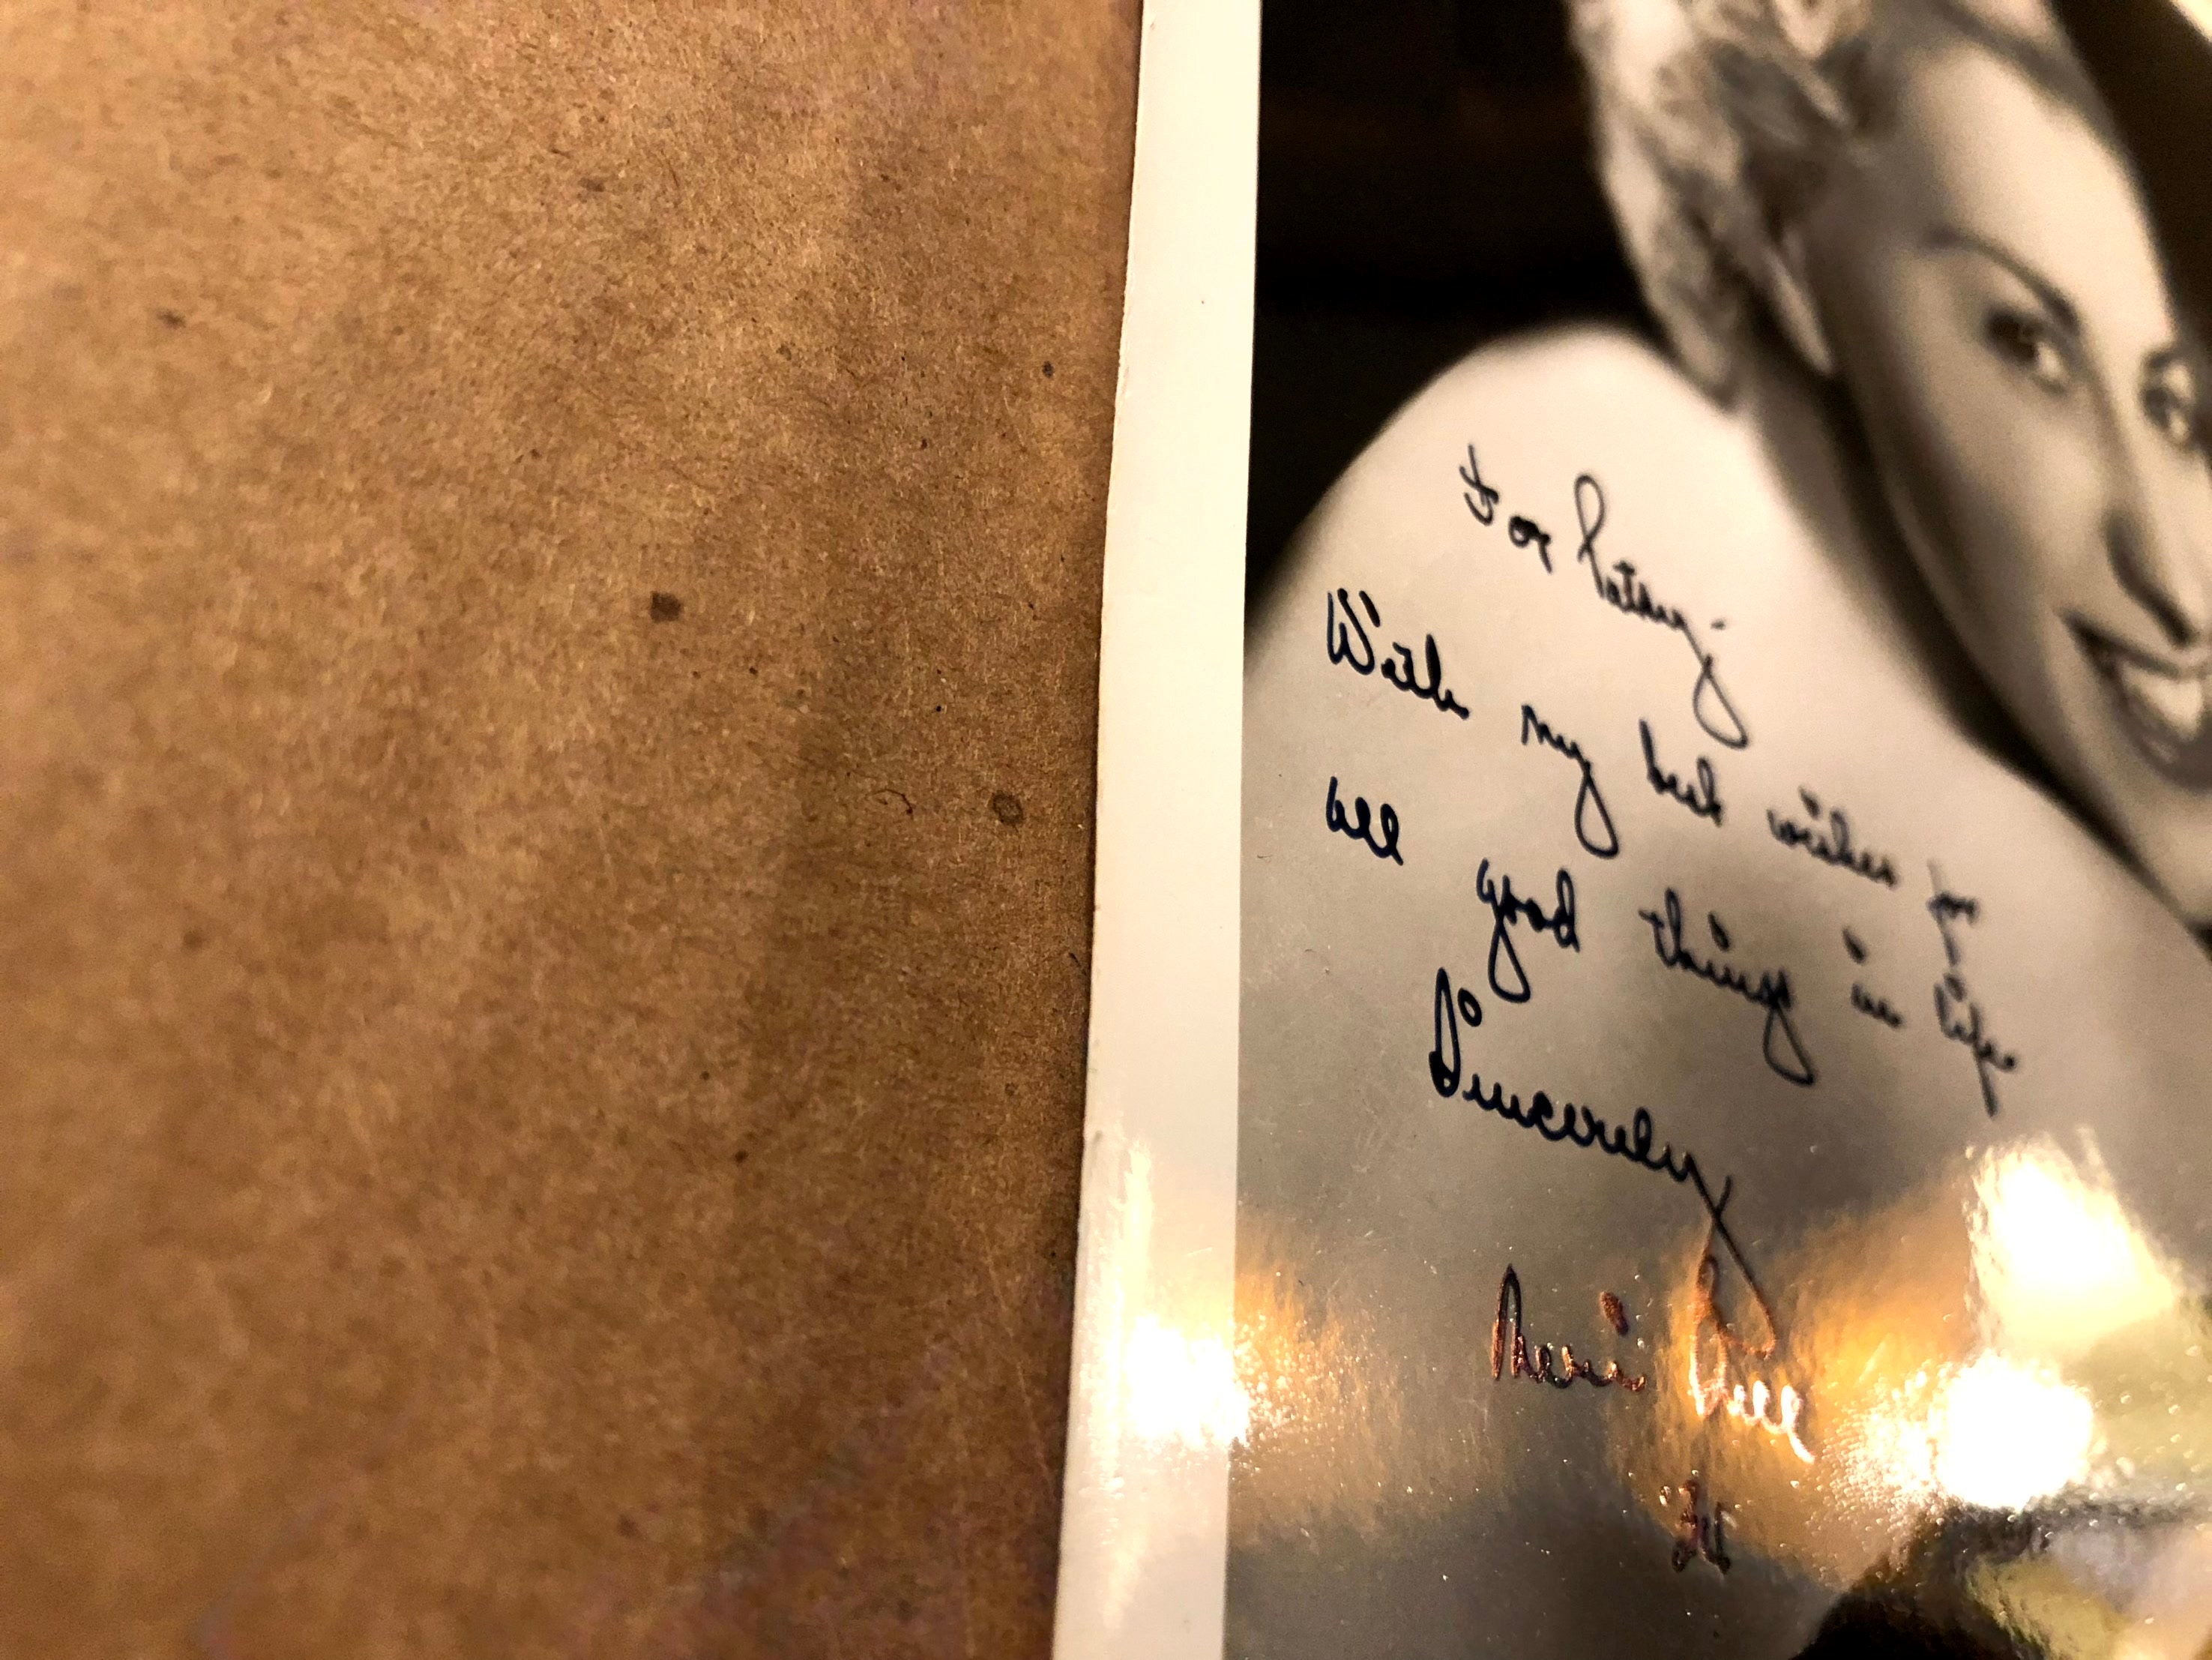 For Patsy-
With my best wishes for
all good things in life
Sincerely